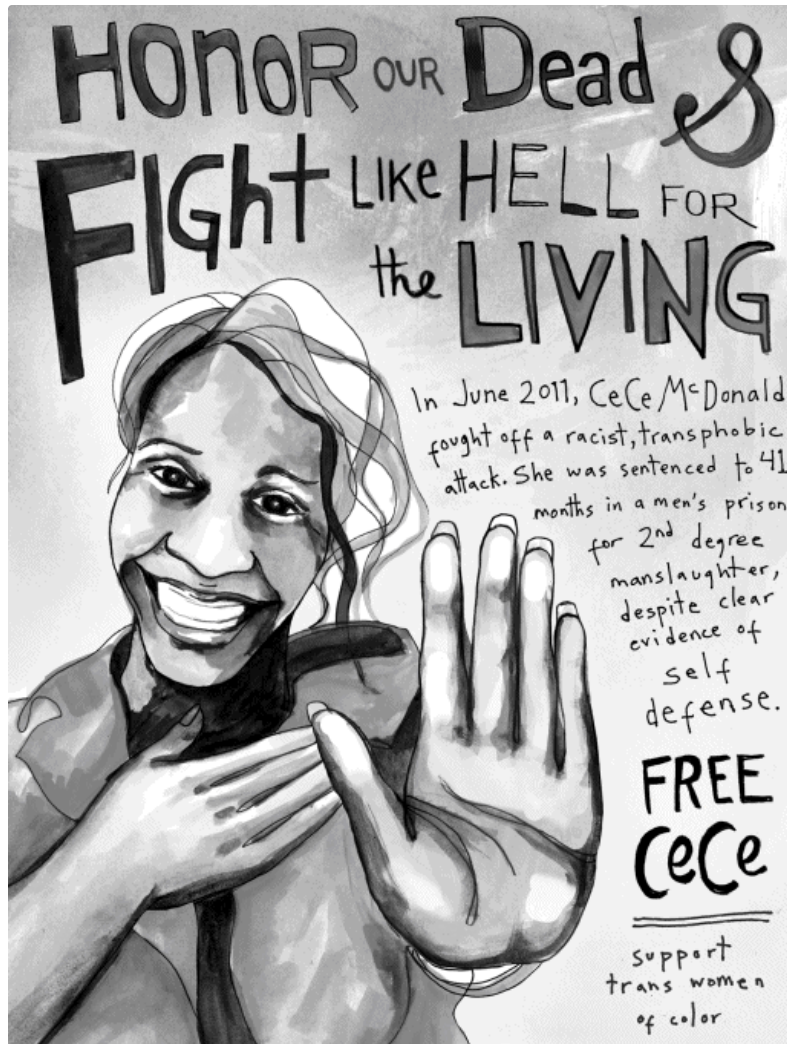 HONOR OUR Dead &
FIGht LIKe HELL FOR
the LIVING
In June 2011, CeCe McDonald
fought off a racist, transphobic
attack. She was sentenced to 41
months in a men's prison
for 2nd degree
manslaughter,
despite clear
evidence of
self
defense.
FREE
CeCe
support
trans women
of color